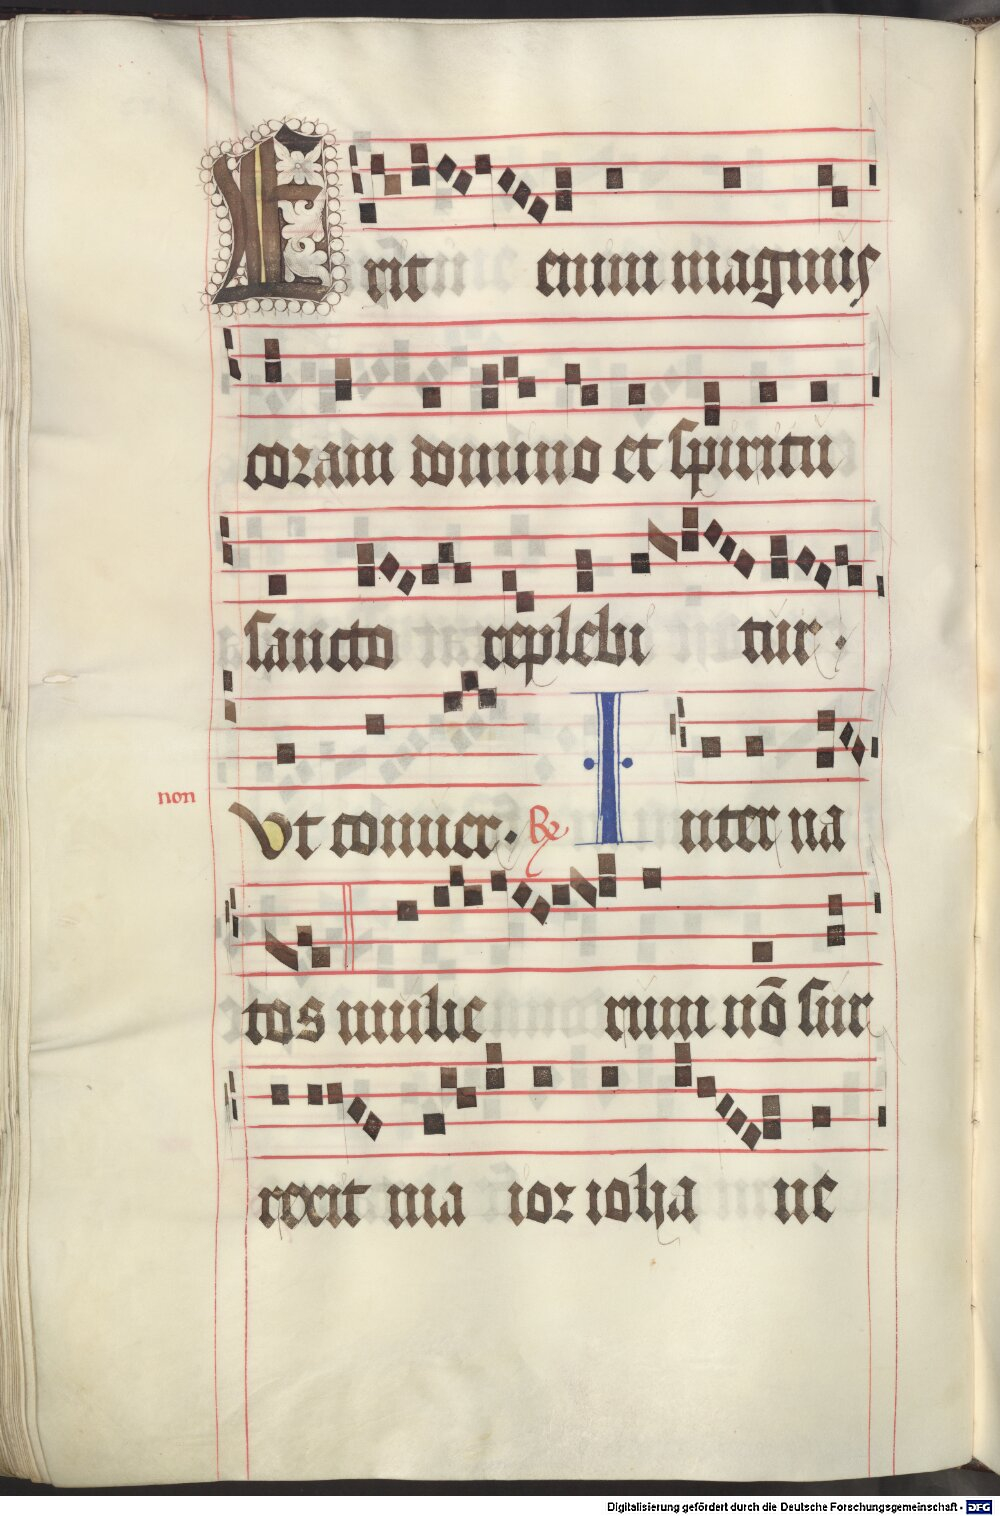 Erit enim magnus
coram domino et spiritu
sancto replebi tur.
non
Ut conuer. R Inter na
tos mulie rum nō sur
rexit ma ior ioha ne
Digitalisierung gefördert durch die Deutsche Forschungsgemeinschaft - DFG